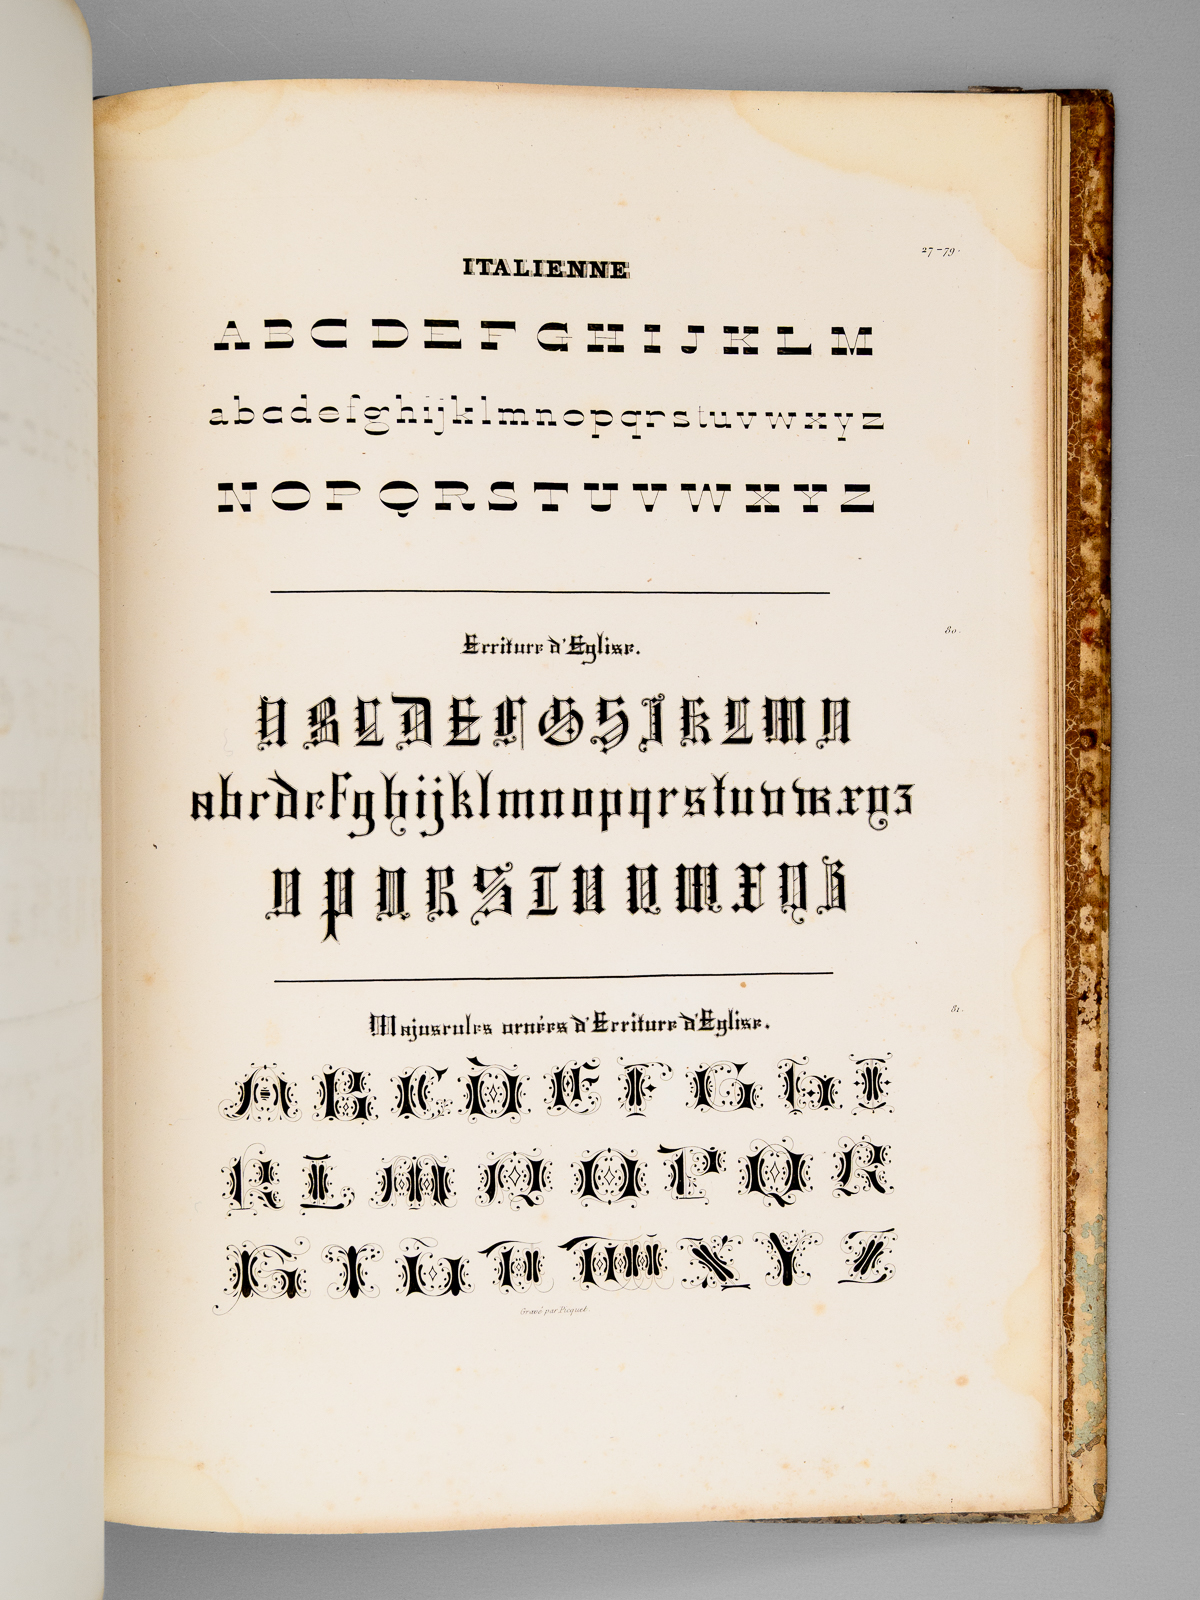 27-79.
ITALIENNE
A B C D E F G H I J K L M
a b c d e f g h i j k l m n o p q r s t u v w x y z
N O P Q R S T U V W X Y Z
80.
Ecriture d'Eglise.
A B C D E F G H I K L M N
a b c d e f g h i j k l m n o p q r s t u v w x y z
O P Q R S T U V W X Y Z
81.
Majuscules ornées d'Ecriture d'Eglise.
A B C D E F G H I
K L M N O P Q R
S T U V W X Y Z
Gravé par Picquet.